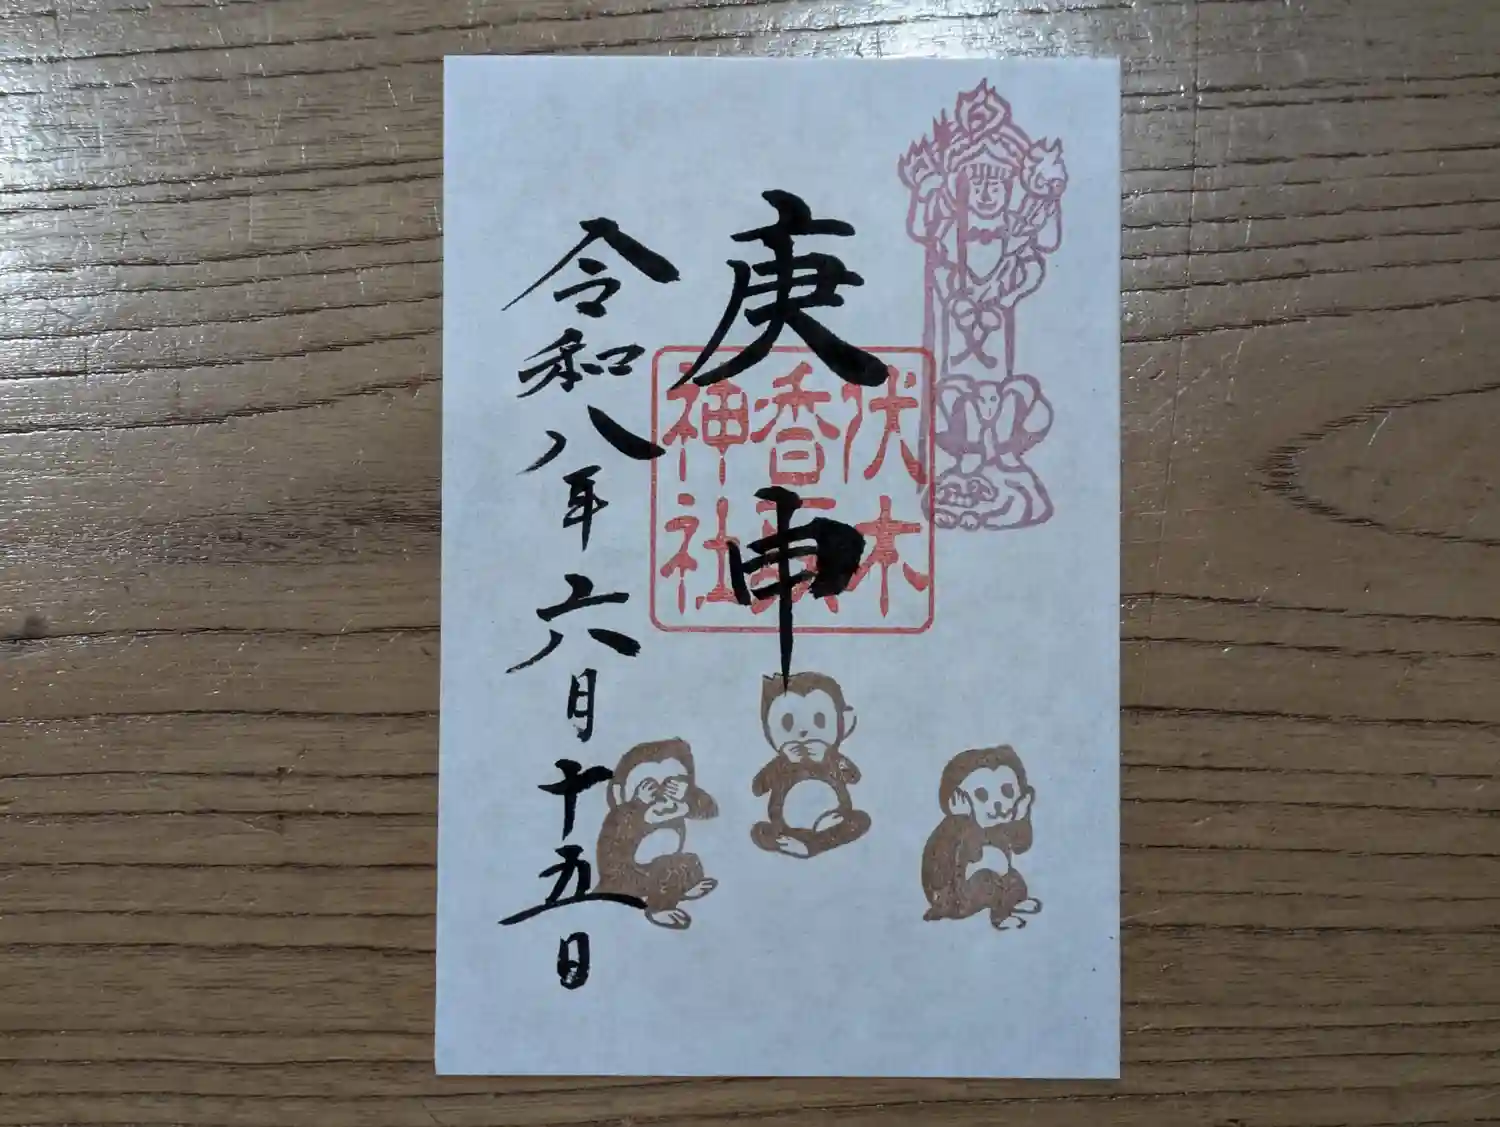 庚申
伏木
香取
神社
令和八年六月十五日